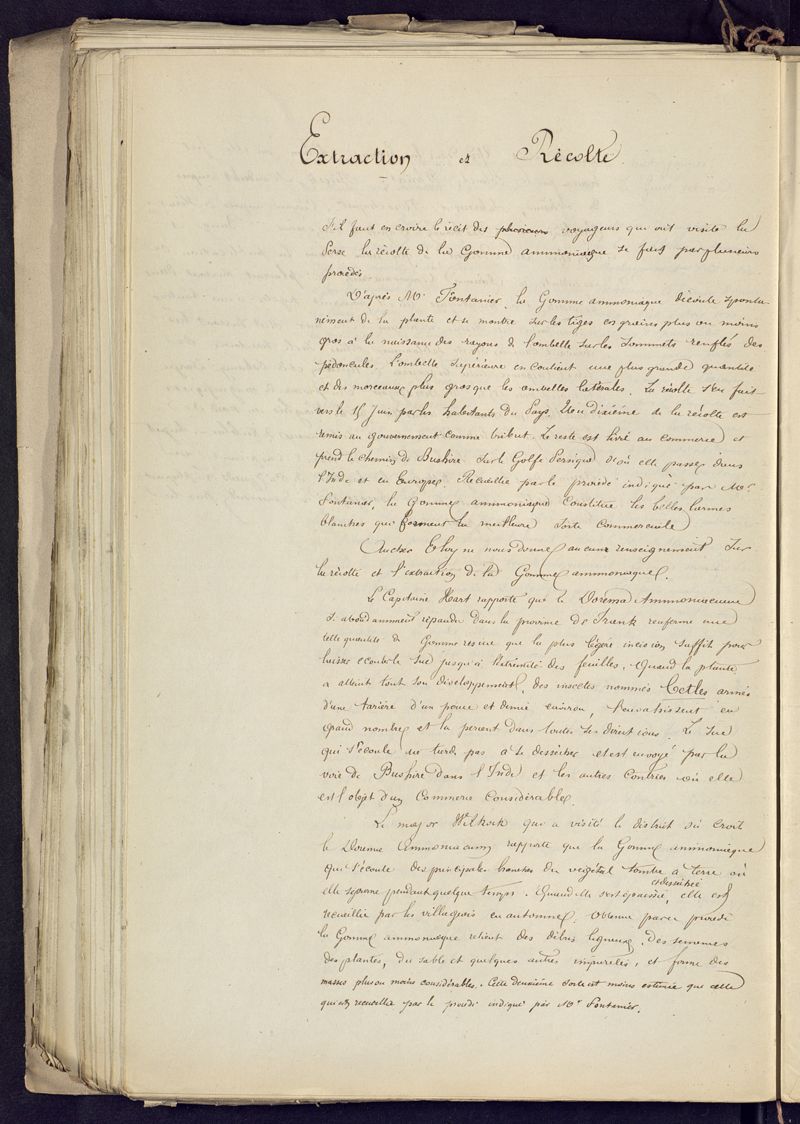 Extraction et Récolte.
S'il faut en croire le récit des plusieurs voyageurs qui ont visité la
Perse la récolte de la Gomme ammoniaque se fait par plusieurs
procédés.
D'après Mr Fontanier, la Gomme ammoniaque découle sponta-
nément de la plante et se montre sur les tiges en graines plus ou moins
gros à la naissance des rayons de l'ombelle sur les sommets renflés des
pédoncules. L'ombelle supérieure en contient une plus grande quantité
et des morceaux plus gros que les ombelles latérales. La récolte s'en fait
vers le 15 Juin par les habitants du Pays. Un dixième de la récolte est
remis au gouvernement comme tribut. Le reste est livré au commerce et
prend le chemin de Bushire sur le Golfe Persique d'où elle passe dans
l'Inde et en Europe. Recueillie par le procédé indiqué par Mr
Fontanier, la Gomme ammoniaque constitue les belles larmes
blanches qui forment la meilleure sorte commerciale
Aucher Eloy ne nous donne aucune renseignement sur
la récolte et l'extraction de la Gomme ammoniaque.
Le Capitaine Hart rapporte que le Dorema Ammoniacum
si abondamment répandu dans la province de Irauk renferme une
telle quantité de Gomme résine que la plus légère incision suffit pour
laisser ecouler le suc jusqu'à l'extrémité des feuilles. Quand la plante
a atteint tout son développement, des insectes nommés Cetles armés
d'une tarière d'un pouce et demie environ, l'envahissent en
grand nombre et la percent dans toutes ses directions. Le suc
qui s'écoule ne tarde pas à se dessécher et est envoyé par la
voie de Bushire dans l'Inde et les autres contrées où elle
est l'objet d'un Commerce considérable.
Le major Wilkock qui a visité le district où croit
le Dorema Ammoniacum rapporte que la Gomme ammoniaque
qui s'écoule des principales branches du végétal tombe à terre où
elle séjourne pendant quelque temps. Quand elle s'est épaissie, et desséchée elle est
recueillie par les villageois en automne. Obtenue par ce procédé
la Gomme ammoniaque retient des débris ligneux, des semences
des plantes, du sable et quelques autres impuretés, et forme des
masses plus ou moins considérables. Cette deuxième sorte est moins estimée que celle
qui est recueillie par le procédé indiqué par Mr Fontanier.